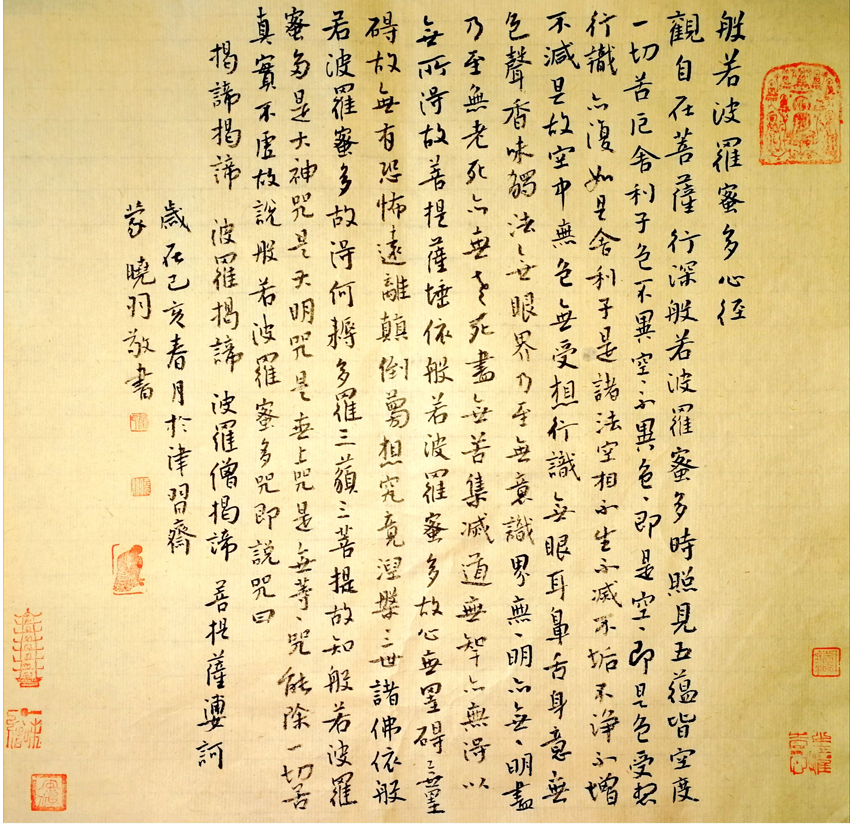 般若波羅蜜多心径
觀自在菩薩行深般若波羅蜜多時照見五蘊皆空度
一切苦厄舍利子色不異空、不異色、即是空、即是色受想
行識亦復如是舍利子是諸法空相不生不滅不垢不淨不增
不減是故空中無色無受想行識無眼耳鼻舌身意無
色聲香味觸法無眼界乃至無意識界無、明亦無、明盡
乃至無老死亦無老死盡無苦集滅道無智亦無得以
無所得故菩提薩埵依般若波羅蜜多故心無罣礙無罣
礙故無有恐怖遠離顛倒夢想究竟涅槃三世諸佛依般
若波羅蜜多故得阿耨多羅三藐三菩提故知般若波羅
蜜多是大神咒是大明咒是無上咒是無等、咒能除一切苦
真實不虛故說般若波羅蜜多咒即說咒曰
揭諦揭諦 波羅揭諦 波羅僧揭諦 菩提薩婆訶
歲在己亥春月於津習齋
蒙曉羽敬書